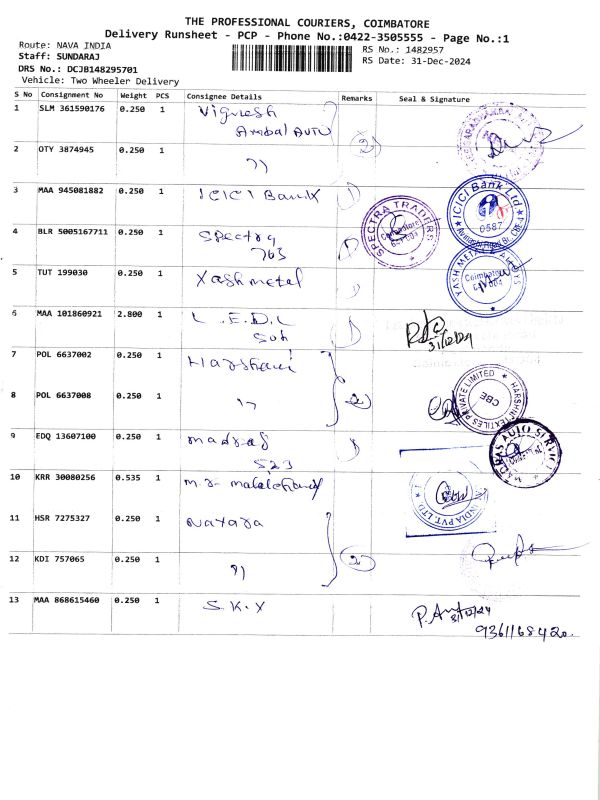 THE PROFESSIONAL COURIERS, COIMBATORE
Delivery Runsheet - PCP - Phone No.:0422-3505555 - Page No.:1
Route: NAVA INDIA
RS No.: 1482957
Staff: SUNDARAJ
RS Date: 31-Dec-2024
DRS No.: DCJB148295701
Vehicle: Two Wheeler Delivery
S No Consignment No Weight PCS Consignee Details Remarks Seal & Signature
1 SLM 361590176 0.250 1 Vignesh
Ambal AUTO
2 OTY 3874945 0.250 1 ,, 2
3 MAA 945081882 0.250 1 ICICI Bank 1
ICICI Bank Ltd
0587
4 BLR 5005167711 0.250 1 Spectra 1
763
SPECTRA TRADERS
Coimbatore
5 TUT 199030 0.250 1 Yash metal 1
YASH METAL & ALLOYS
Coimbatore
6 MAA 101860921 2.800 1 L.E.D.L 1
31/12/24
7 POL 6637002 0.250 1 Harshani
8 POL 6637008 0.250 1 ,, 2
TEXTILES PRIVATE LIMITED
CBE
9 EDQ 13607100 0.250 1 madras 1
523
MADRAS AUTO SERVICE
10 KRR 30080256 0.535 1
INDIA PVT. LTD
11 HSR 7275327 0.250 1 Natara
12 KDI 757065 0.250 1 ,, 2
13 MAA 868615460 0.250 1 S.K.X
31/12/24
9361168420.